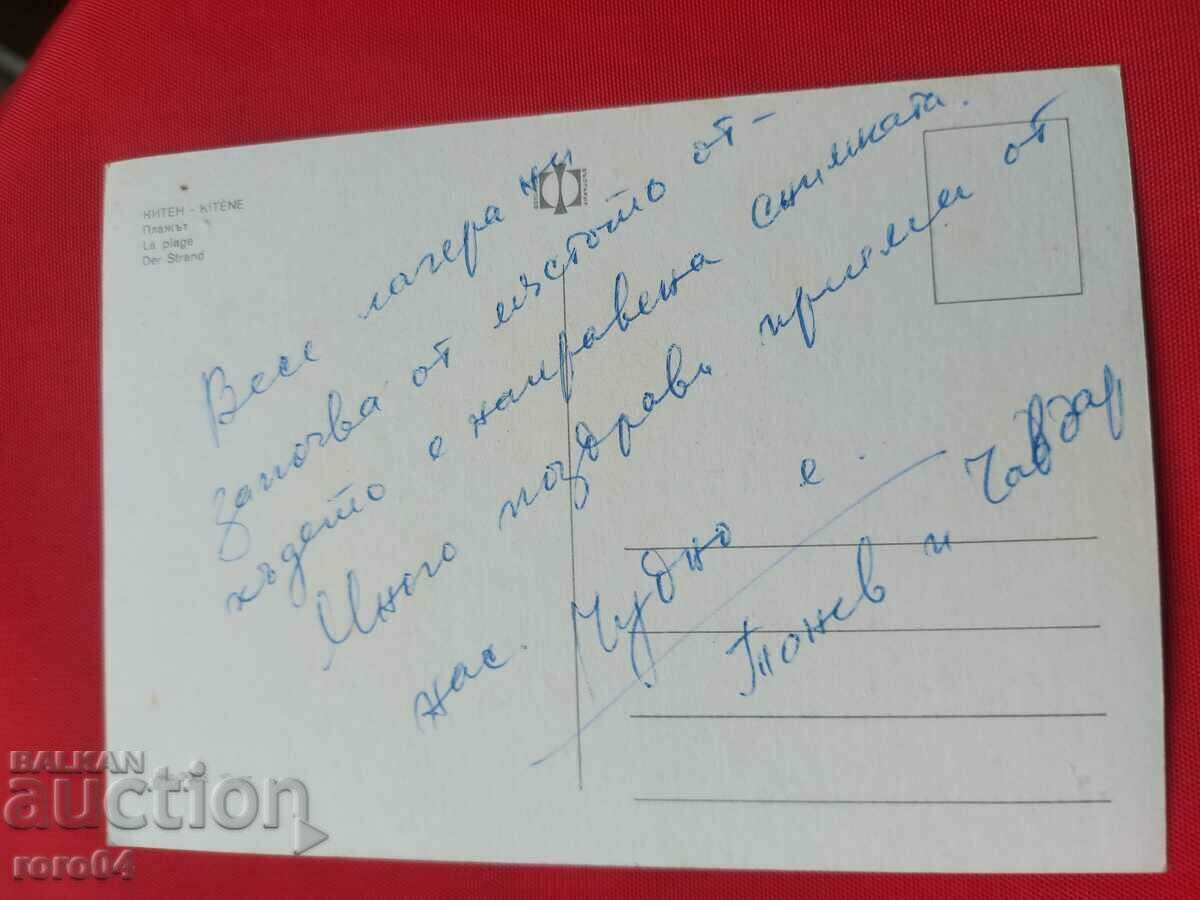 КИТЕН - KITÈNE
Плажът
La plage
Der Strand
Весе лагера ни
започва от мястото от-
където е направена снимката.
Много поздрави приеми от
нас. Чудно е.
Тонев и Чавдар
BALKAN
auction
roro04